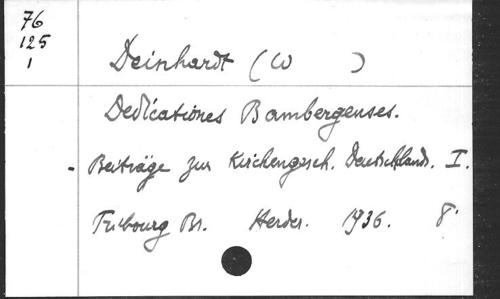 76
125
1
Deinhardt (W )
Dedicationes Bambergenses.
- Beiträge zur Kirchengesch. Deutschlands. I.
Fribourg Br. Herder. 1936. 8°